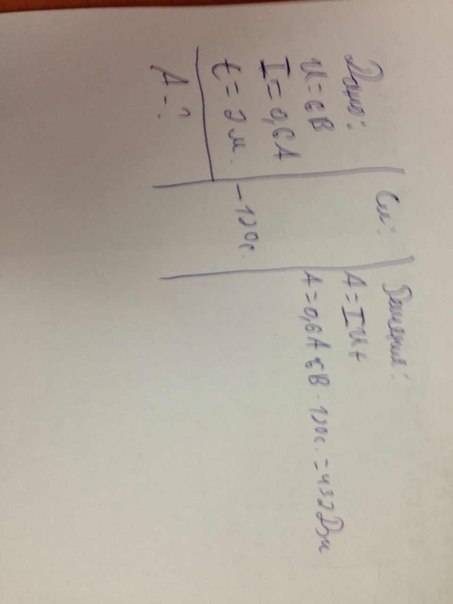 Дано:
U=6В
I=0,6А
t=2м.
А-?
Си:
-120с.
Решения:
A=IUt
A=0,6А 6В · 120с. =432Дж